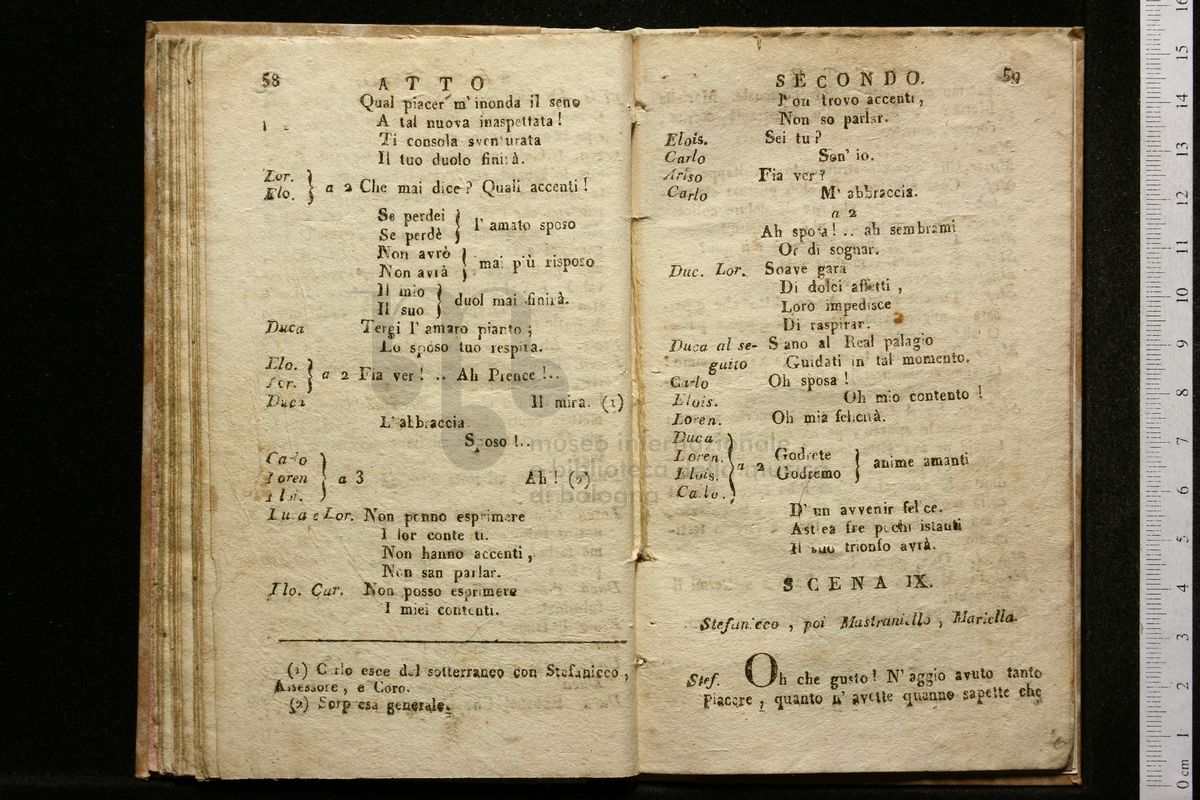 58
ATTO
Qual piacer m' inonda il seno
A tal nuova inaspettata!
Ti consola sventurata
Il tuo duolo finirà.
Lor.
Elo. } a 2 Che mai dice? Quali accenti!
Se perdei
Se perdè } l' amato sposo
Non avrò
Non avrà } mai più risposo
Il mio
Il suo } duol mai finirà.
Duca Tergi l' amaro pianto;
Lo sposo tuo respira.
Elo.
Lor. } a 2 Fia ver! .. Ah Prence!..
Duca Il mira. (1)
L' abbraccia.
Sposo!..
Carlo
Loren
Eloi. } a 3 Ah! (2)
Duca e Lor. Non ponno esprimere
I lor contenti.
Non hanno accenti,
Non san parlar.
Elo. Car. Non posso esprimere
I miei contenti.
(1) Carlo esce dal sotterraneo con Stefanicco,
Assessore, e Coro.
(2) Sorpresa generale.
SECONDO.
59
Non trovo accenti,
Non so parlar.
Elois. Sei tu?
Carlo Son' io.
Fia ver?
Carlo M' abbraccia.
a 2
Ah sposa! .. ah sembrami
Or di sognar.
Duc. Lor. Soave gara
Di dolci affetti,
Loro impedisce
Di raspirar.
Duca al se- Siano al Real palagio
guito Guidati in tal momento.
Carlo Oh sposa!
Elois. Oh mio contento!
Loren. Oh mia felicità.
Duca.
Loren.
Elois.
Carlo. } a 2 Godrete
Godremo } anime amanti
D' un avvenir felice.
Astrea fre pochi istanti
Il suo trionfo avrà.
SCENA IX.
Stefanicco, poi Mastraniello, Mariella.
Stef. Oh che gusto! N' aggio avuto tanto
piacere, quanto n' avette quanno sapette che
museo internazionale
e biblioteca della musica
di bologna
0 cm 1 2 3 4 5 6 7 8 9 10 11 12 13 14 15 16